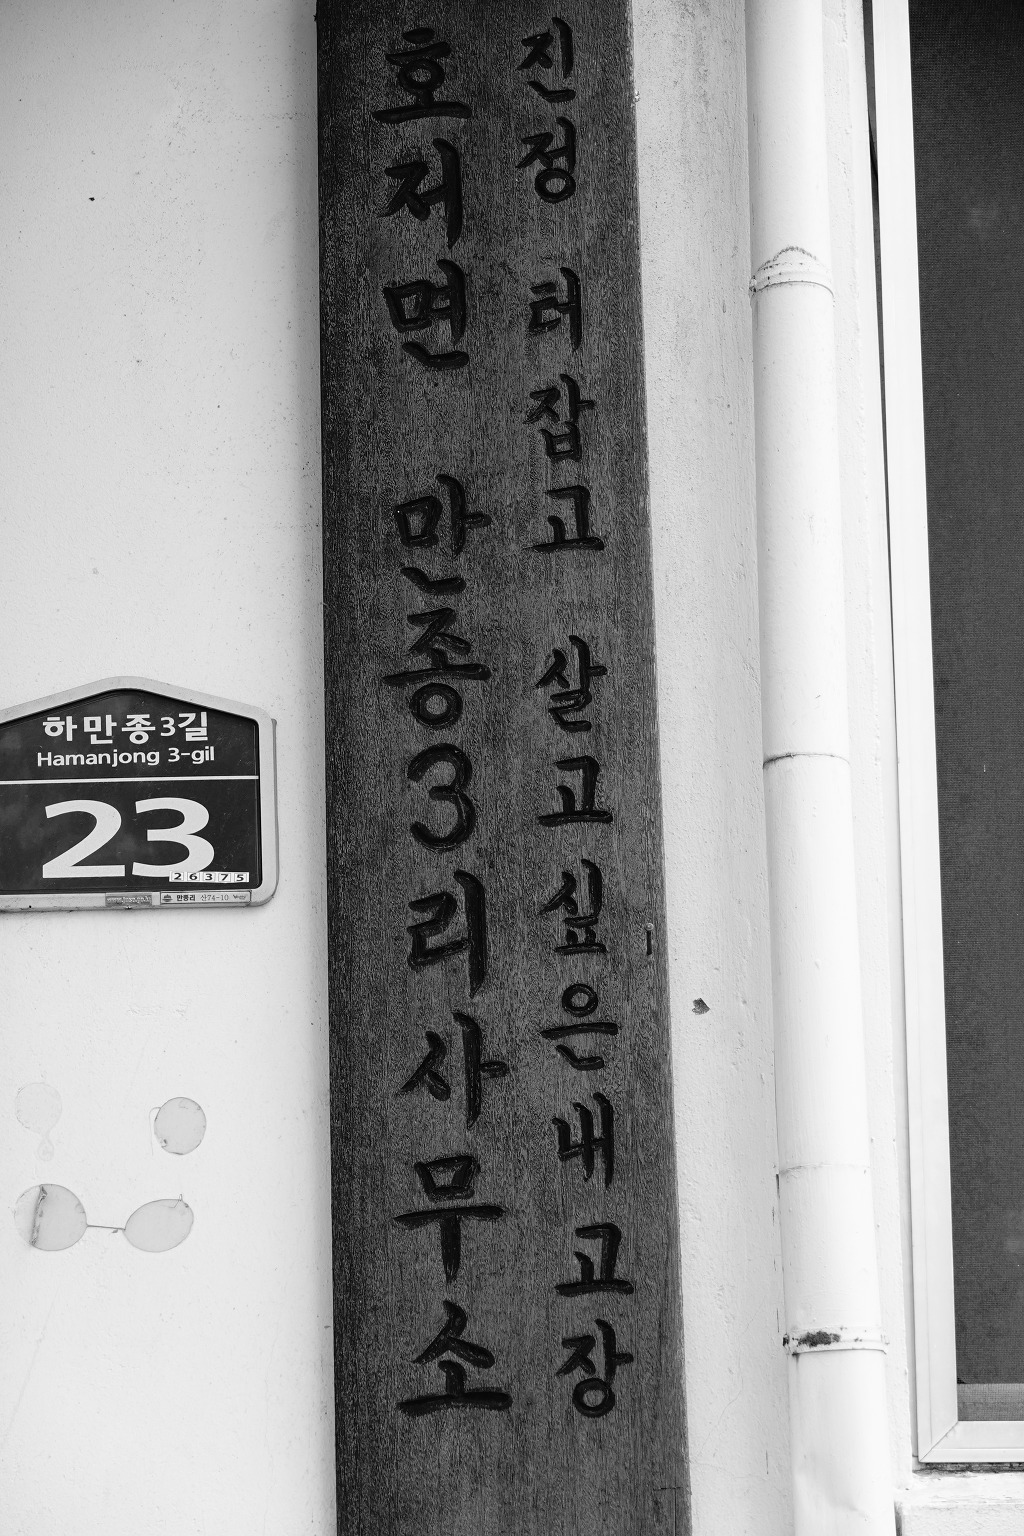 진정 터잡고 살고싶은내고장
호저면 만종3리사무소
하만종3길
Hamanjong 3-gil
23
26375
만종리 산74-10